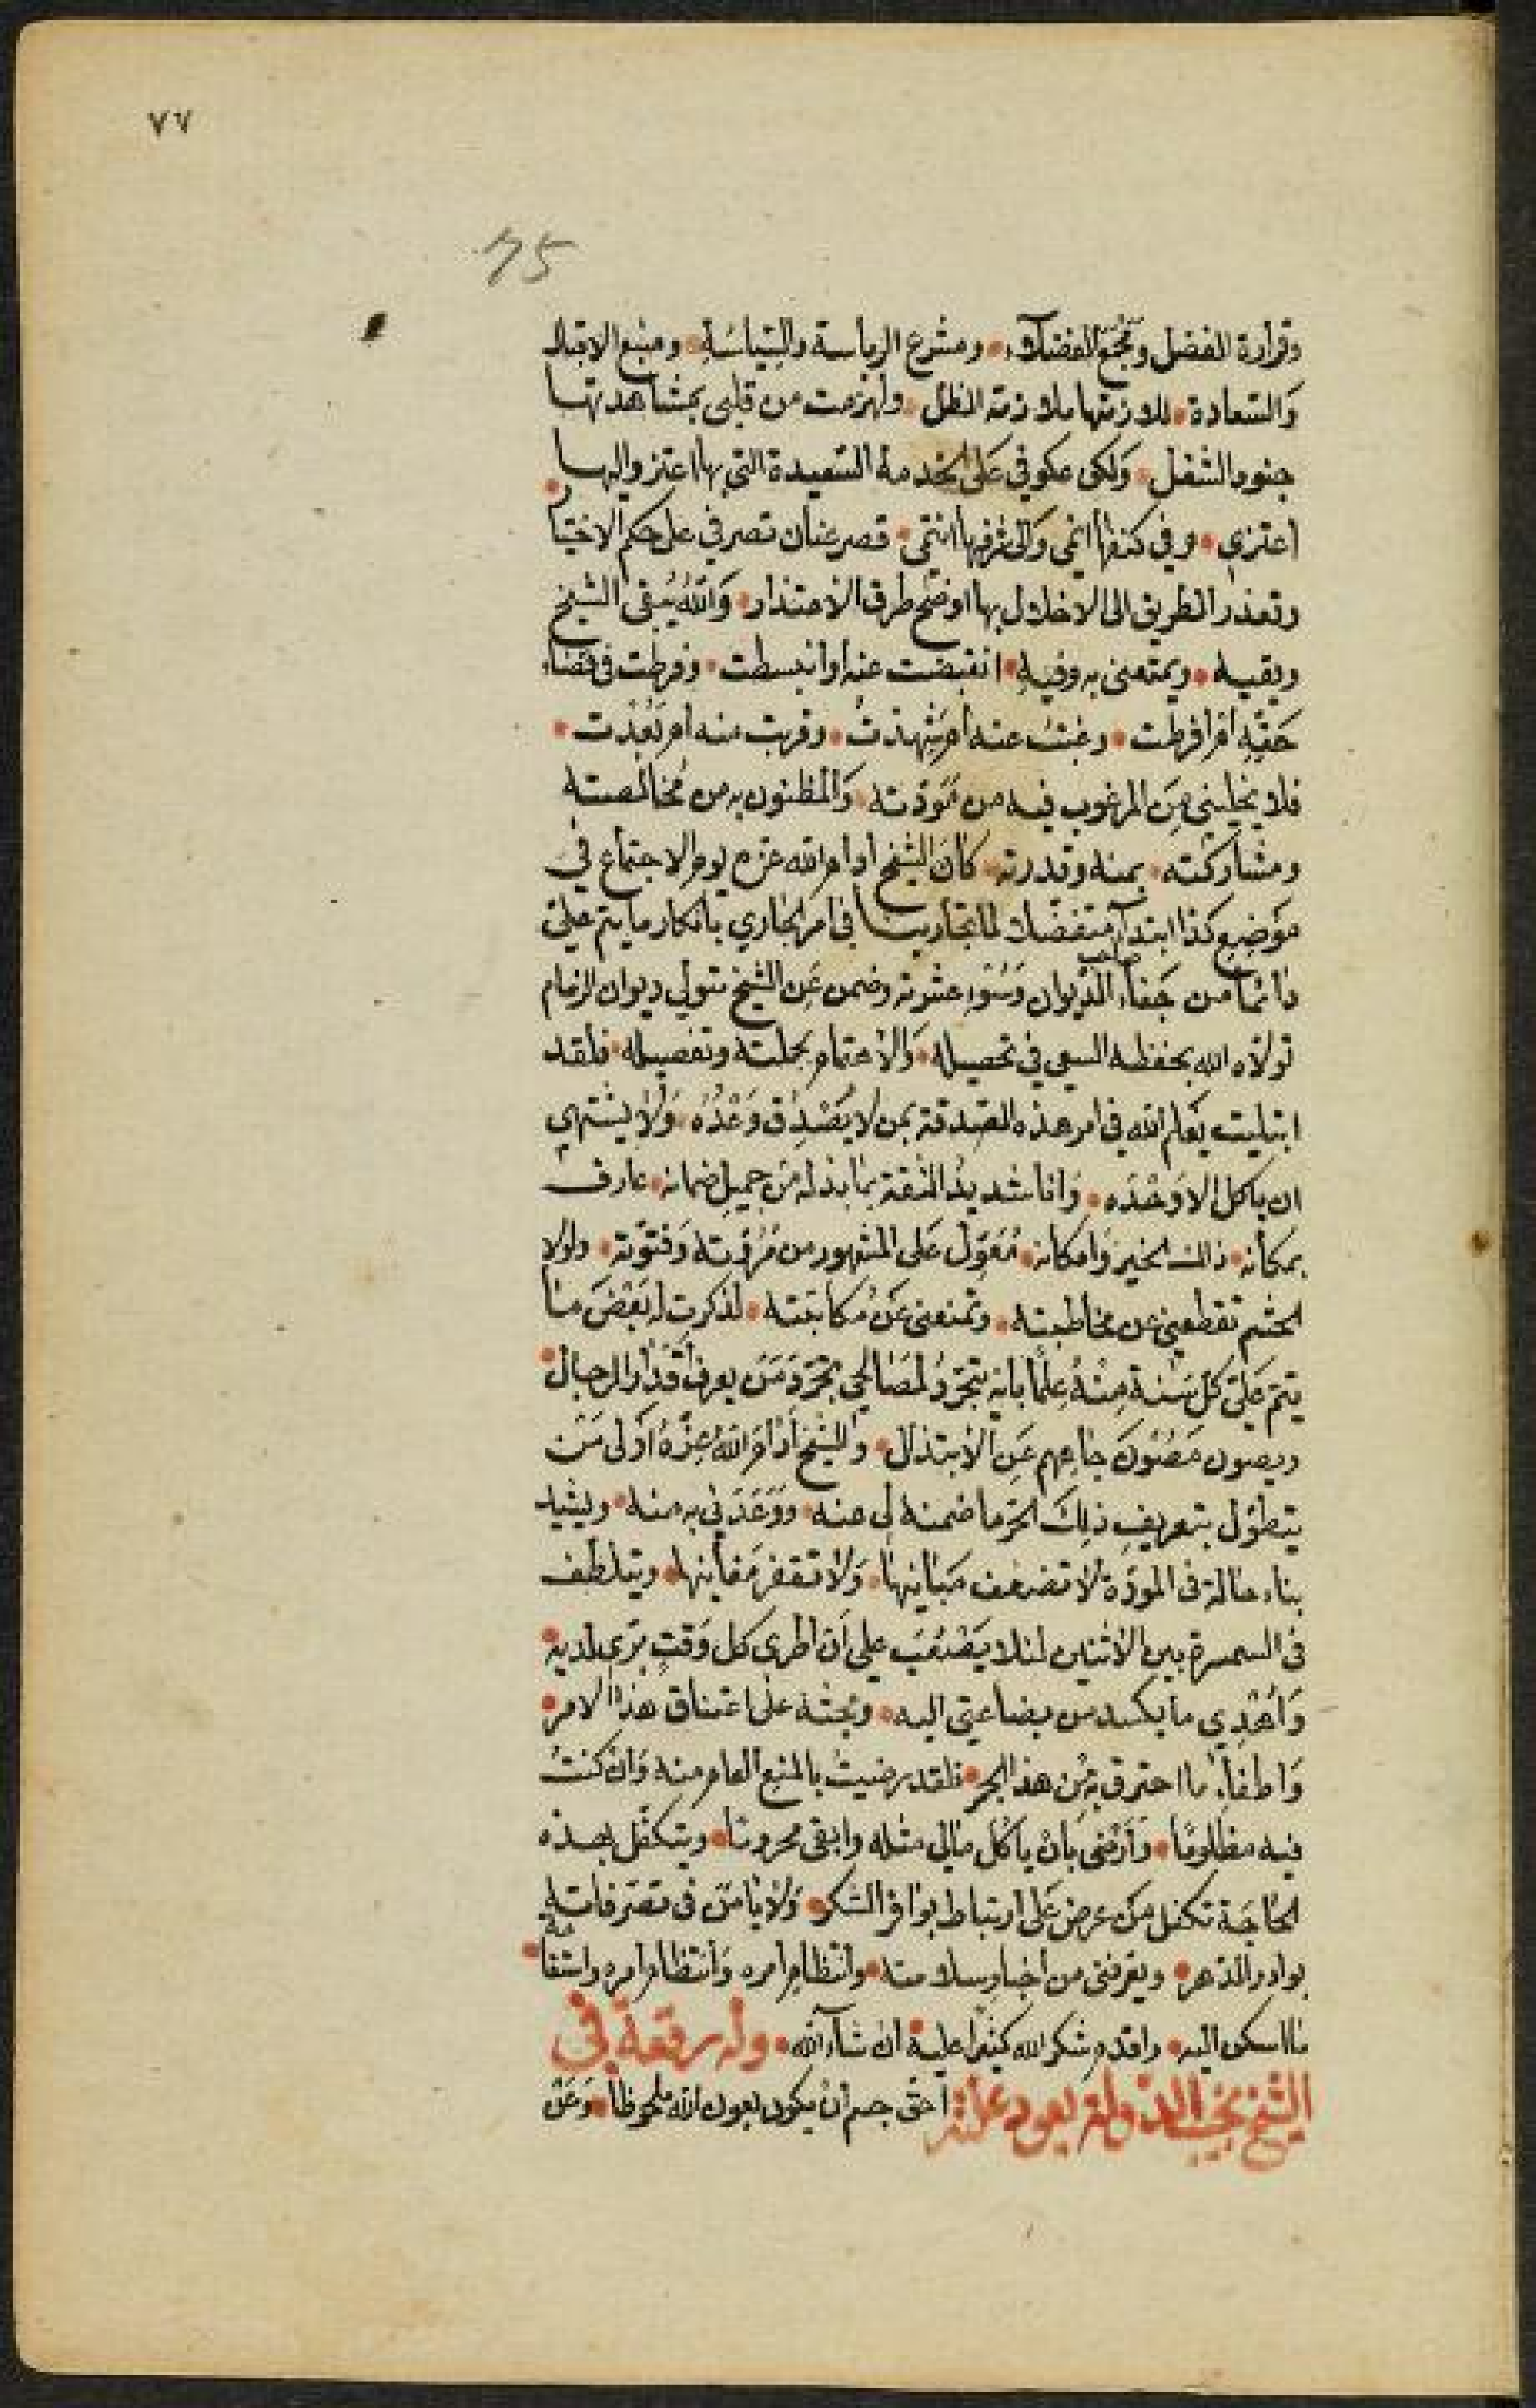 ٧٧
75
وقرارة الفضل ومجمع الفضلاء ومشرع الرياسة والسياسة ومنبع الاقبال
والسعادة للازمتها ملازمة الظل ولهزمت من قلبي بمشاهدتها
جنود الشغل ولكن عكوفي على الخدمة السعيدة التي بها اعتز واليها
اعتزي وفي كنفها انمى والى شرفها انتمى قصر عنان تصرفي على حكم الاختيار
وتعذر الطريق الى الاخلال بها اوضح طرق الاعتذار والله يبقى الشيخ
ويقيه ويمتعنى به وفيه انقبضت عنه او انبسطت وفرطت في قضاء
حقه ام افرطت وغبت عنه ام شهدت وقربت منه ام بعدت
فلا يخلينى من المرغوب فيه من مودته والمظنون به من مخالصته
ومشاركته بمنه وقدرته كان الشيخ ادام الله عزه يوم الاجتماع في
موضع كذا ابتدأ متفضلا لما تجارينا في امر الجاري بانكار ما يتم علىّ
دائما من جفاء صاحب الديوان وسوء عشرته وضمن عن الشيخ متولي ديوان الزمام
تولاه الله بحفظه السعي في تحصيله والاهتمام بجملته وتفصيله فلقد
ابتليت يعلم الله في امر هذه الصدقة بمن لا يصدق وعده ولا يشتهي
ان ياكل الا وحده وانا شديد الثقة بما بذله من جميل ضمانه عارف
بمكانه ذلك الخير وامكانه معول على المشهور من مروته وفتوته ولولا
الحشم تقطعني عن مخاطبته وتمنعنى عن مكاتبته لذكرت له بعض ما
يتم على كل سنة منه علما بانه يتجرد لمصالحي تجرد من يعرف اقدار الرجال
ويصون مصون جاههم عن الابتذال والشيخ ادام الله عزه اولى من
يتطول بتعريف ذلك الحر ما ضمنه لى عنه ووعدني به منه ويشيد
بناء حالة في المودة لا تضعف مبانيها ولا تقفر مغانيها ويتلطف
في السمسرة بين الاثنين لئلا يصعب علي ان اطرى كل وقت برى لديه
واهدي ما يكسد من بضاعتي اليه وبحثه على اعتناق هذا الامر
واطفاء ما احترق به من هذا الجمر فلقد رضيت بالمنع العام منه وان كنت
فيه مظلوما وارضى بان ياكل مالي مثله وابقى محروما ويتكفل بهذه
الحاجة تكفل من عرض على ارتباط بوافر الشكر ولا يأمن في تصرفاته
بوادر الدهر ويعرفنى من اخبار سلامته وانتظام امره وانتظام امره واستقامة
ما اسكن اليه واقدم شكر الله كثيرا عليه ان شآء الله وله رقعة في
الشيخ نجيب الدولة يعود علته احق جسم ان يكون بعون الله ملحوظا وعن